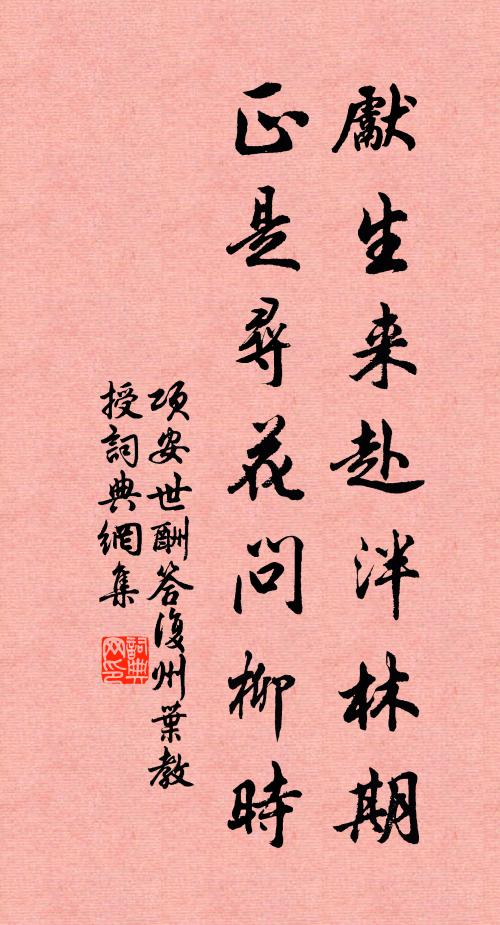 獻生来赴泮林期
正是尋花問柳時
項安世酬答復州葉教
授詞典網集
詞典
网印